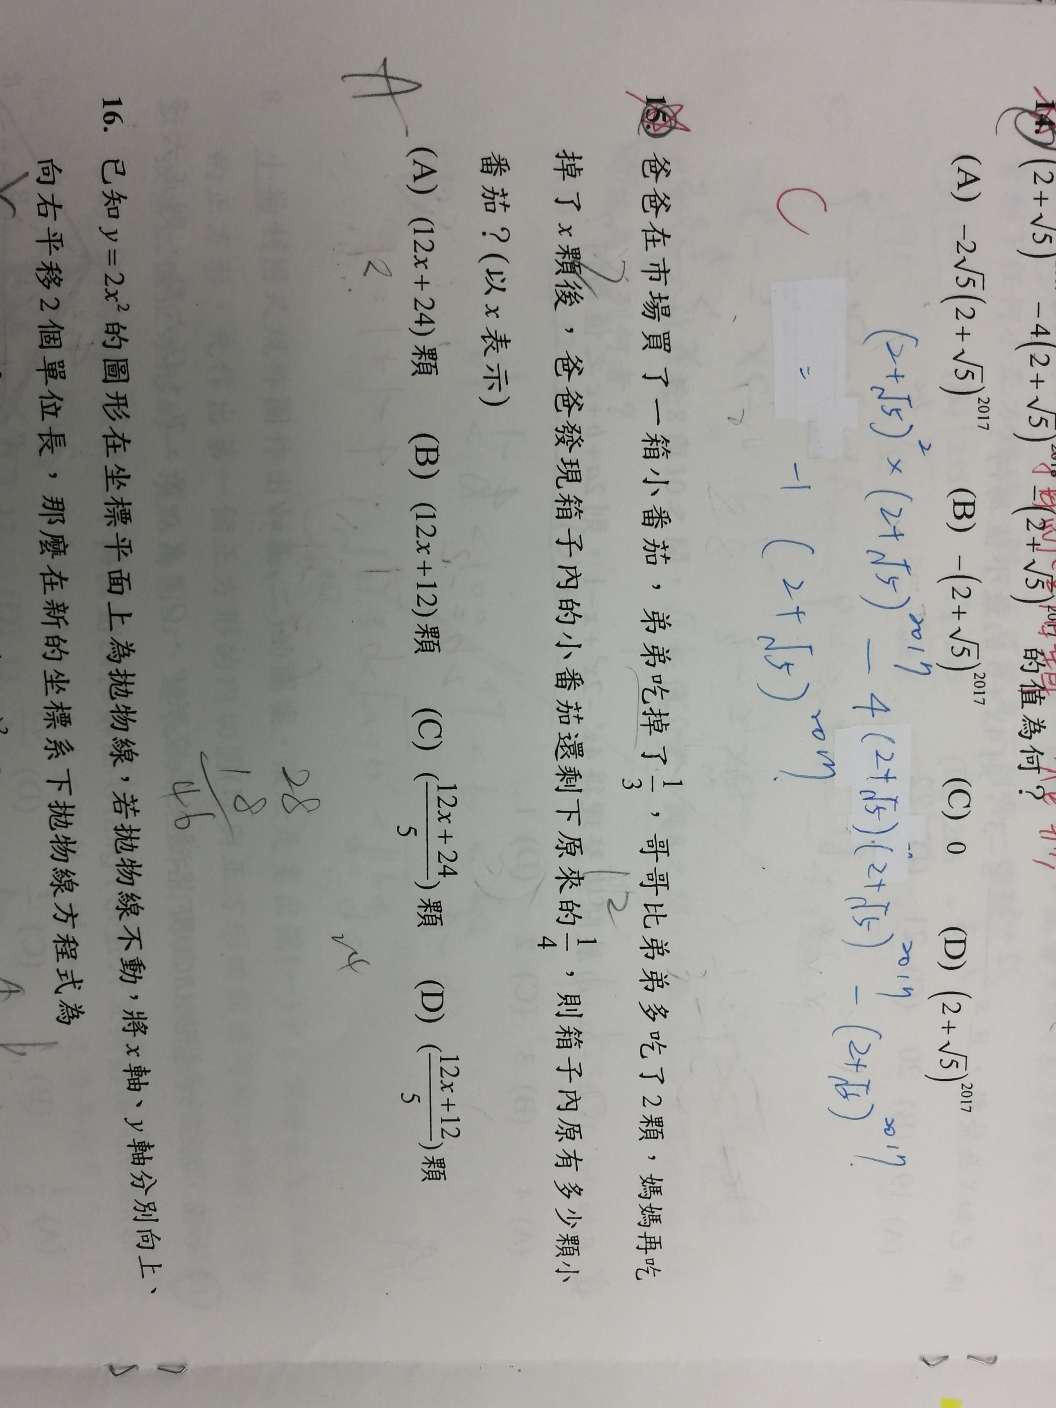 14. (2+√5) −4(2+√5) −(2+√5) 的值為何?
(A) −2√5(2+√5)²⁰¹⁷ (B) −(2+√5)²⁰¹⁷ (C) 0 (D) (2+√5)²⁰¹⁷
(2+√5)² × (2+√5)²⁰¹⁷ − 4(2+√5)·(2+√5)²⁰¹⁷ − (2+√5)²⁰¹⁷
= −1 (2+√5)²⁰¹⁷
C
15. 爸爸在市場買了一箱小番茄,弟弟吃掉了1/3,哥哥比弟弟多吃了2顆,媽媽再吃
掉了x顆後,爸爸發現箱子內的小番茄還剩下原來的1/4,則箱子內原有多少顆小
番茄?(以x表示)
(A) (12x+24)顆 (B) (12x+12)顆 (C) (12x+24/5)顆 (D) (12x+12/5)顆
A
24
28
18
46
16. 已知y=2x²的圖形在坐標平面上為拋物線,若拋物線不動,將x軸、y軸分別向上、
向右平移2個單位長,那麼在新的坐標系下拋物線方程式為